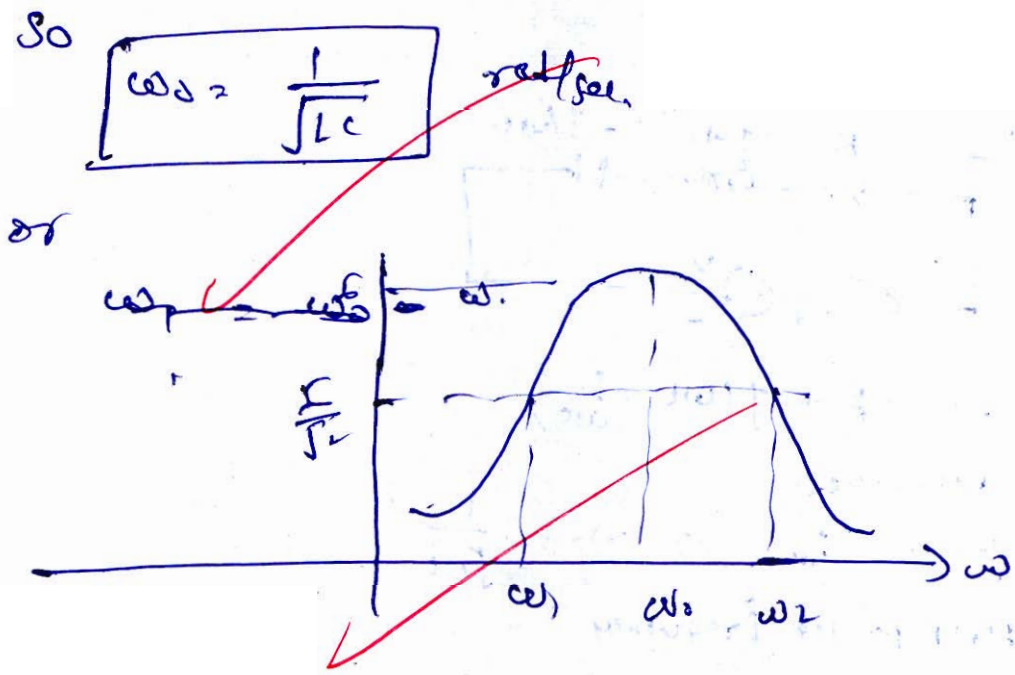 So
ω₀ = 1/√LC rad/sec.
or
I/√2
ω₁ ω₀ ω₂ ω